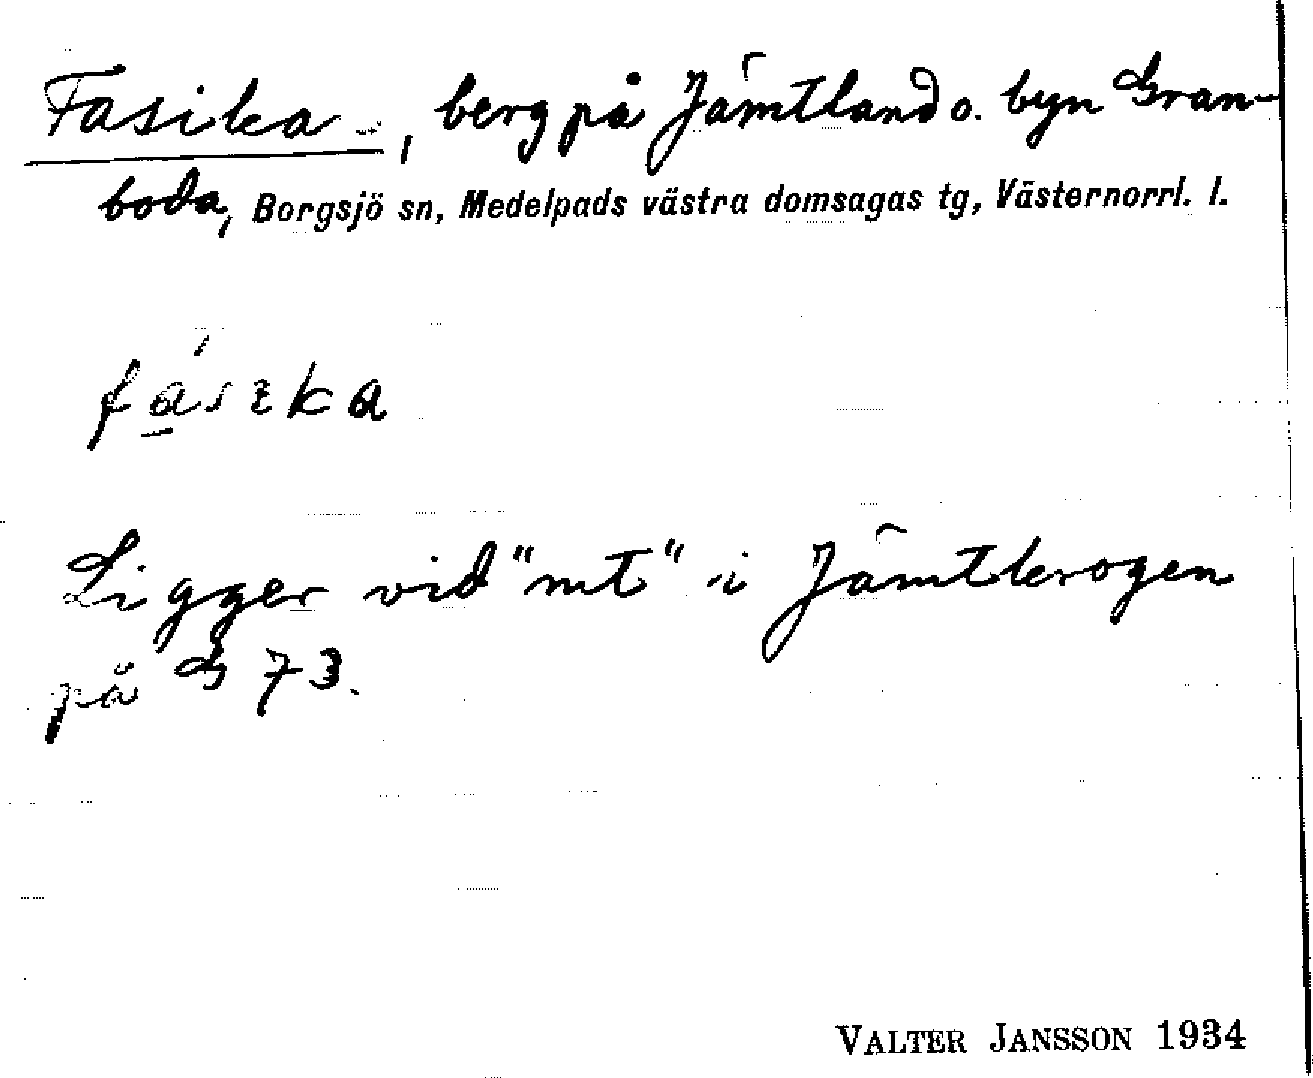 Fasika -, berg på Jämtland o. byn Gran-
boda, Borgsjö sn, Medelpads västra domsagas tg, Västernorrl. l.
fásıka
Ligger vid "mt" i Jämtkrogen
på G 73.
VALTER JANSSON 1934